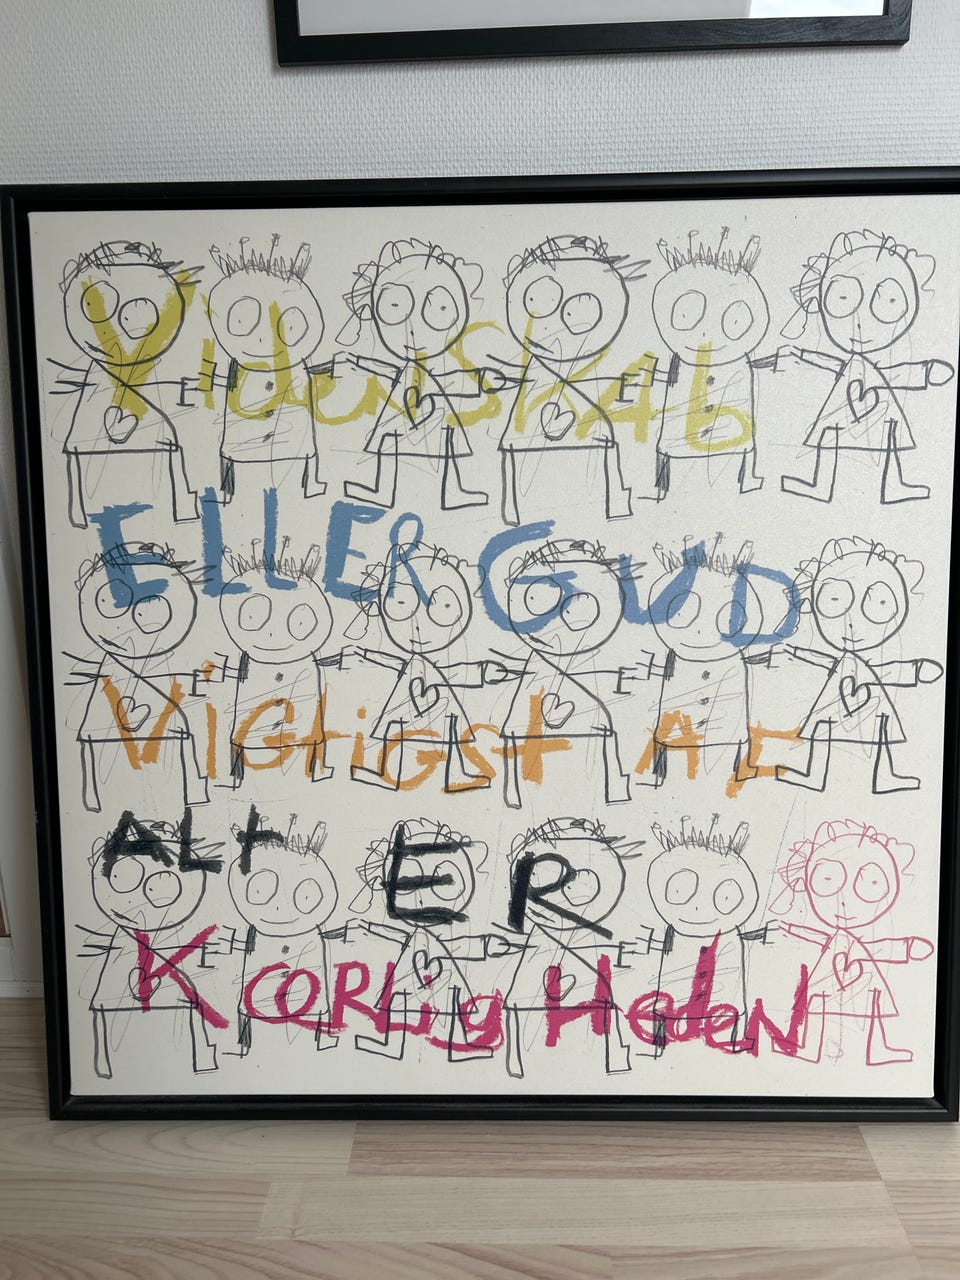 VidenSkab
ELLER GUD
ViGtigst AF
ALt ER
KÆRLig HedeN